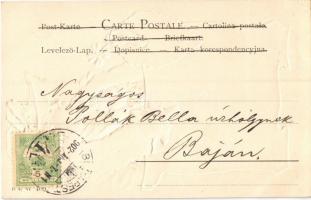 Post-Karte. — CARTE POSTALE. — Cartolina postale.
Postcard. — Briefkaart.
Levelező-Lap. — Dopisnice. — Karta korespondencyjna.
Nagyságos
Pollák Bella úrhölgynek
Baján.